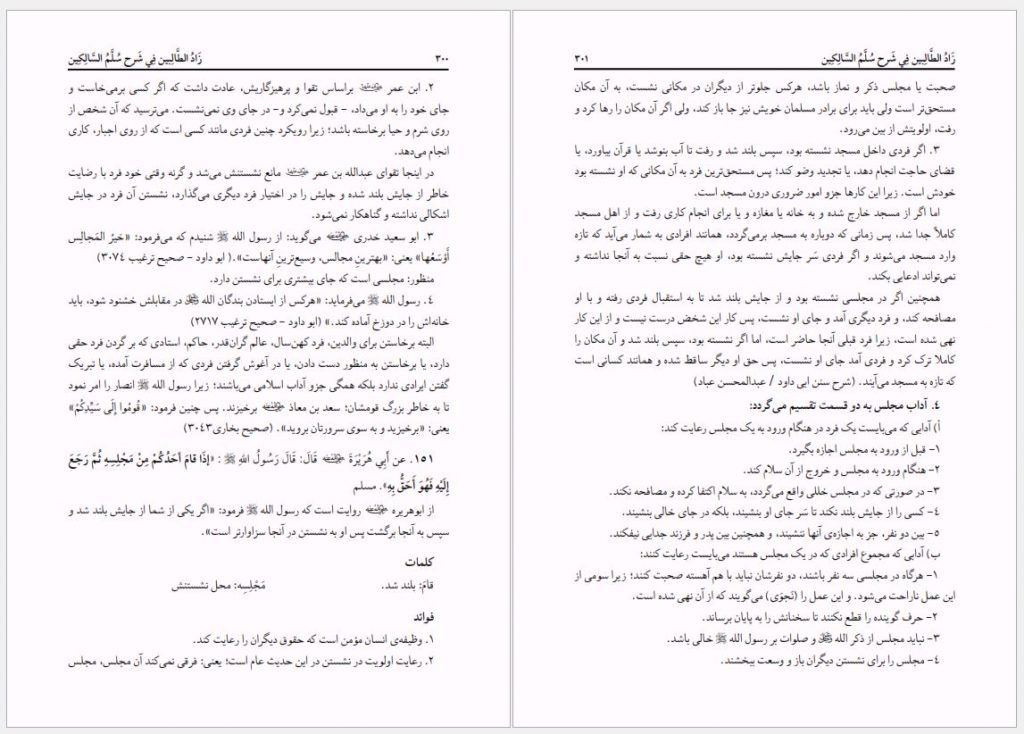 زَادُ الطَّالِبِین فِي شَرحِ سُلَّمُ السَّالِکِین
۳۰۰
۲. ابن عمر رضی‌الله‌عنه براساس تقوا و پرهیزگاریش، عادت داشت که اگر کسی برمی‌خاست و
جای خود را به او می‌داد، - قبول نمی‌کرد و- در جای وی نمی‌نشست. می‌ترسید که آن شخص از
روی شرم و حیا برخاسته باشد؛ زیرا رویکرد چنین فردی مانند کسی است که از روی اجبار، کاری
انجام می‌دهد.
در اینجا تقوای عبدالله بن عمر رضی‌الله‌عنه مانع نشستنش می‌شد و گرنه وقتی خود فرد با رضایت
خاطر از جایش بلند شده و جایش را در اختیار فرد دیگری می‌گذارد، نشستن آن فرد در جایش
اشکالی نداشته و گناهکار نمی‌شود.
۳. ابو سعید خدری رضی‌الله‌عنه می‌گوید: از رسول الله ﷺ شنیدم که می‌فرمود: «خیرُ المَجالِس
أَوْسَعُها» یعنی: «بهترینِ مجالس، وسیع‌ترینِ آنهاست».( ابو داود - صحیح ترغیب ۳۰۷٤)
منظور: مجلسی است که جای بیشتری برای نشستن دارد.
٤. رسول الله ﷺ می‌فرماید: «هرکس از ایستادن بندگان الله ﷻ در مقابلش خشنود شود، باید
خانه‌اش را در دوزخ آماده کند.» (ابو داود - صحیح ترغیب ۲۷۱۷)
البته برخاستن برای والدین، فرد کهن‌سال، عالم گران‌قدر، حاکم، استادی که بر گردن فرد حقی
دارد، یا برخاستن به منظور دست دادن، یا در آغوش گرفتن فردی که از مسافرت آمده، یا تبریک
گفتن ایرادی ندارد بلکه همگی جزو آداب اسلامی می‌باشند؛ زیرا رسول الله ﷺ انصار را امر نمود
تا به خاطر بزرگ قومشان؛ سعد بن معاذ رضی‌الله‌عنه برخیزند. پس چنین فرمود: «قُومُوا إِلَى سَيِّدِكُمْ»
یعنی: «برخیزید و به سوی سرورتان بروید». (صحیح بخاری۳۰٤۳)
۱٥۱. عن أَبِي هُرَيْرَةَ رضی‌الله‌عنه قَالَ: قَالَ رَسُولُ اللهِ ﷺ : «إِذَا قامَ أَحَدُكُمْ مِنْ مَجْلِسِهِ ثُمَّ رَجَعَ
إِلَيْهِ فَهُوَ أَحَقُّ بِهِ». مسلم
از ابوهریره رضی‌الله‌عنه روایت است که رسول الله ﷺ فرمود: «اگر یکی از شما از جایش بلند شد و
سپس به آنجا برگشت پس او به نشستن در آنجا سزاوارتر است».
کلمات
قامَ: بلند شد. مَجْلِسِه: محل نشستنش
فوائد
۱. وظیفه‌ی انسان مؤمن است که حقوق دیگران را رعایت کند.
۲. رعایت اولویت در نشستن در این حدیث عام است؛ یعنی: فرقی نمی‌کند آن مجلس، مجلس
زَادُ الطَّالِبِین فِي شَرحِ سُلَّمُ السَّالِکِین
۳۰۱
صحبت یا مجلس ذکر و نماز باشد، هرکس جلوتر از دیگران در مکانی نشست، به آن مکان
مستحق‌تر است ولی باید برای برادر مسلمان خویش نیز جا باز کند، ولی اگر آن مکان را رها کرد و
رفت، اولویتش از بین می‌رود.
۳. اگر فردی داخل مسجد نشسته بود، سپس بلند شد و رفت تا آب بنوشد یا قرآن بیاورد، یا
قضای حاجت انجام دهد، یا تجدید وضو کند؛ پس مستحق‌ترین فرد به آن مکانی که او نشسته بود
خودش است. زیرا این کارها جزو امور ضروری درون مسجد است.
اما اگر از مسجد خارج شده و به خانه یا مغازه و یا برای انجام کاری رفت و از اهل مسجد
کاملاً جدا شد، پس زمانی که دوباره به مسجد برمی‌گردد، همانند افرادی به شمار می‌آید که تازه
وارد مسجد می‌شوند و اگر فردی سَر جایش نشسته بود، او هیچ حقی نسبت به آنجا نداشته و
نمی‌تواند ادعایی بکند.
همچنین اگر در مجلسی نشسته بود و از جایش بلند شد تا به استقبال فردی رفته و با او
مصافحه کند، و فرد دیگری آمد و جای او نشست، پس کار این شخص درست نیست و از این کار
نهی شده است، زیرا فرد قبلی آنجا حاضر است، اما اگر نشسته بود، سپس بلند شد و آن مکان را
کاملا ترک کرد و فردی آمد جای او نشست، پس حق او دیگر ساقط شده و همانند کسانی است
که تازه به مسجد می‌آیند. (شرح سنن ابی داود / عبدالمحسن عباد)
٤. آداب مجلس به دو قسمت تقسیم می‌گردد:
أ) آدابی که می‌بایست یک فرد در هنگام ورود به یک مجلس رعایت کند:
۱- قبل از ورود به مجلس اجازه بگیرد.
۲- هنگام ورود به مجلس و خروج از آن سلام کند.
۳- در صورتی که در مجلس خللی واقع می‌گردد، به سلام اکتفا کرده و مصافحه نکند.
٤- کسی را از جایش بلند نکند تا سَر جای او بنشیند، بلکه در جای خالی بنشیند.
٥- بین دو نفر، جز به اجازه‌ی آنها ننشیند، و همچنین بین پدر و فرزند جدایی نیفکند.
ب) آدابی که مجموع افرادی که در یک مجلس هستند می‌بایست رعایت کنند:
۱- هرگاه در مجلسی سه نفر باشند، دو نفرشان نباید با هم آهسته صحبت کنند؛ زیرا سومی از
این عمل ناراحت می‌شود. و این عمل را (نَجوَی) می‌گویند که از آن نهی شده است.
۲- حرف گوینده را قطع نکنند تا سخنانش را به پایان برساند.
۳- نباید مجلس از ذکر الله ﷻ و صلوات بر رسول الله ﷺ خالی باشد.
٤- مجلس را برای نشستن دیگران باز و وسعت ببخشند.